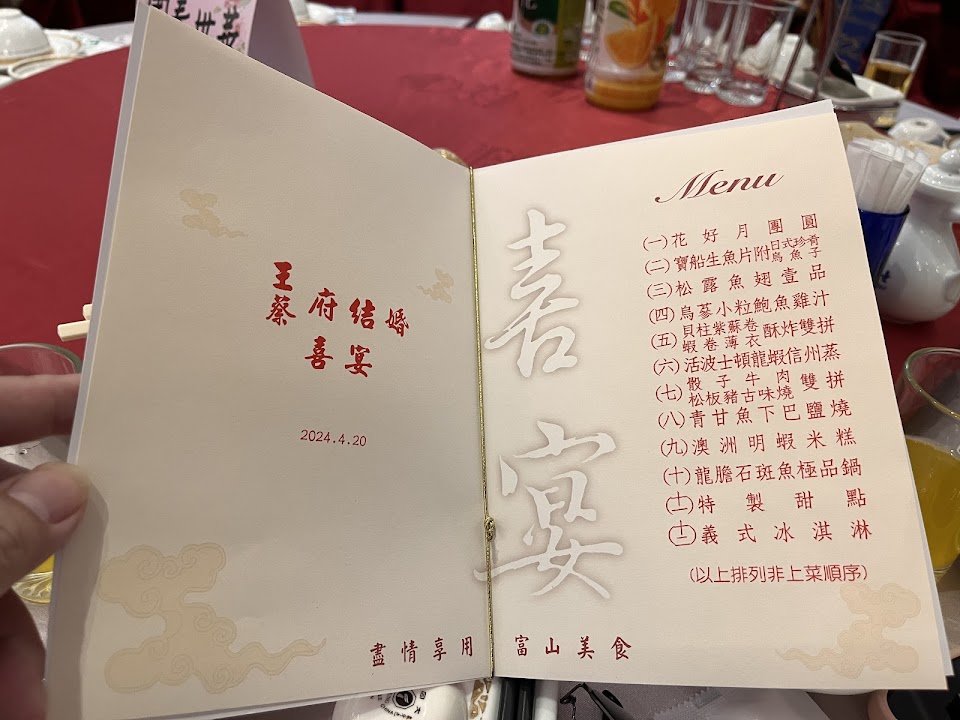 王
蔡府結婚
喜宴
2024.4.20
喜宴
Menu
(一)花好月團圓
(二)寶船生魚片附日式珍肴烏魚子
(三)松露魚翅壹品
(四)烏蔘小粒鮑魚雞汁
(五)貝柱紫蘇卷蝦卷薄衣酥炸雙拼
(六)活波士頓龍蝦信州蒸
(七)骰子牛肉松板豬古味燒雙拼
(八)青甘魚下巴鹽燒
(九)澳洲明蝦米糕
(十)龍膽石斑魚極品鍋
(十一)特製甜點
(十二)義式冰淇淋
(以上排列非上菜順序)
盡情享用 富山美食